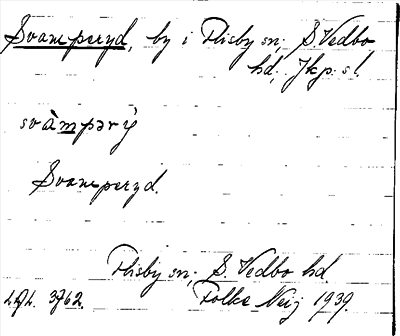 Svamperyd, by i Flisby sn; S Vedbo
hd; Jkp. sl.
svàmpərỳ
Svamperyd.
Flisby sn; S. Vedbo hd
3762. Folke Neij 1939.